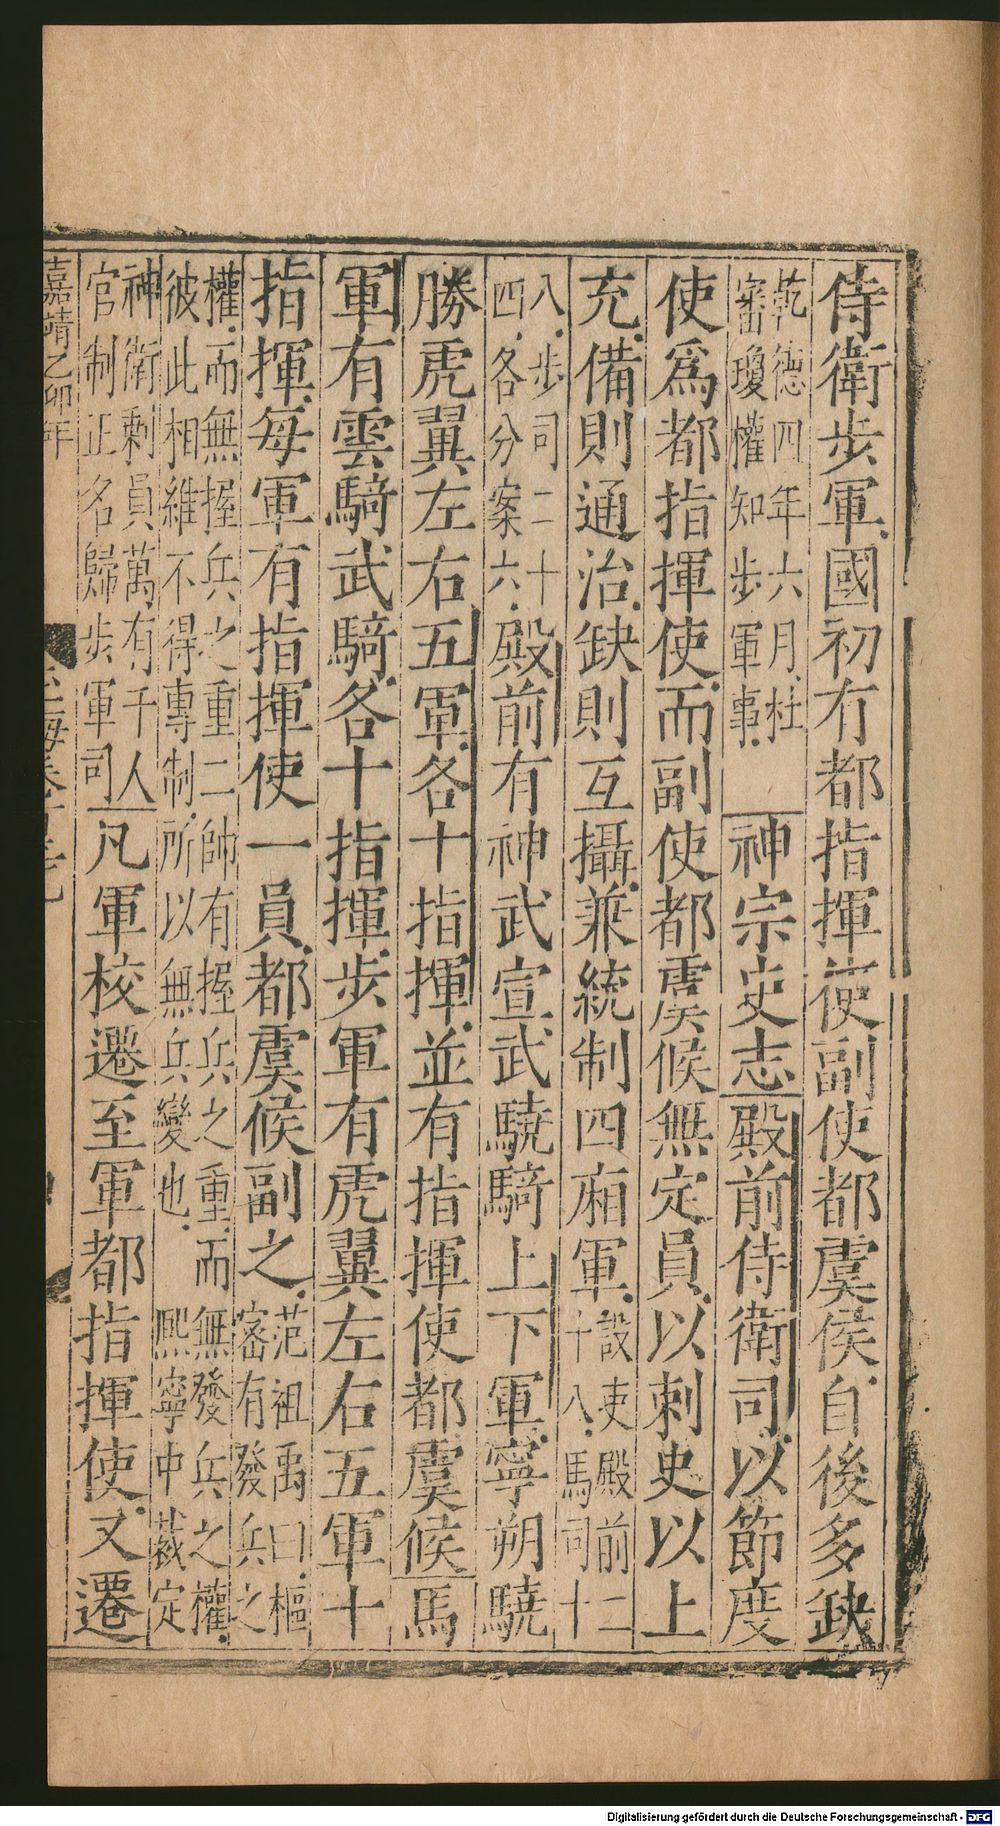 侍衛步軍國初有都指揮使副使都虞侯自後多缺
乾德四年六月杜
審瓊權知步軍事
神宗史志殿前侍衛司以節度
使爲都指揮使而副使都虞候無定員以刺史以上
充備則通治缺則互攝兼統制四廂軍
設吏殿前二
十八馬司十
八步司二十
四各分案六
殿前有神武宣武驍騎上下軍寧朔驍
勝虎翼左右五軍各十指揮並有指揮使都虞候馬
軍有雲騎武騎各十指揮步軍有虎翼左右五軍十
指揮每軍有指揮使一員都虞候副之
范祖禹曰樞
密有發兵之
權而無握兵之重二帥有握兵之重而無發兵之權
彼此相維不得專制所以無兵變也
熙寧中裁定
神衛剩員萬有千人
官制正名歸步軍司
凡軍校遷至軍都指揮使又遷
嘉靖乙卯年